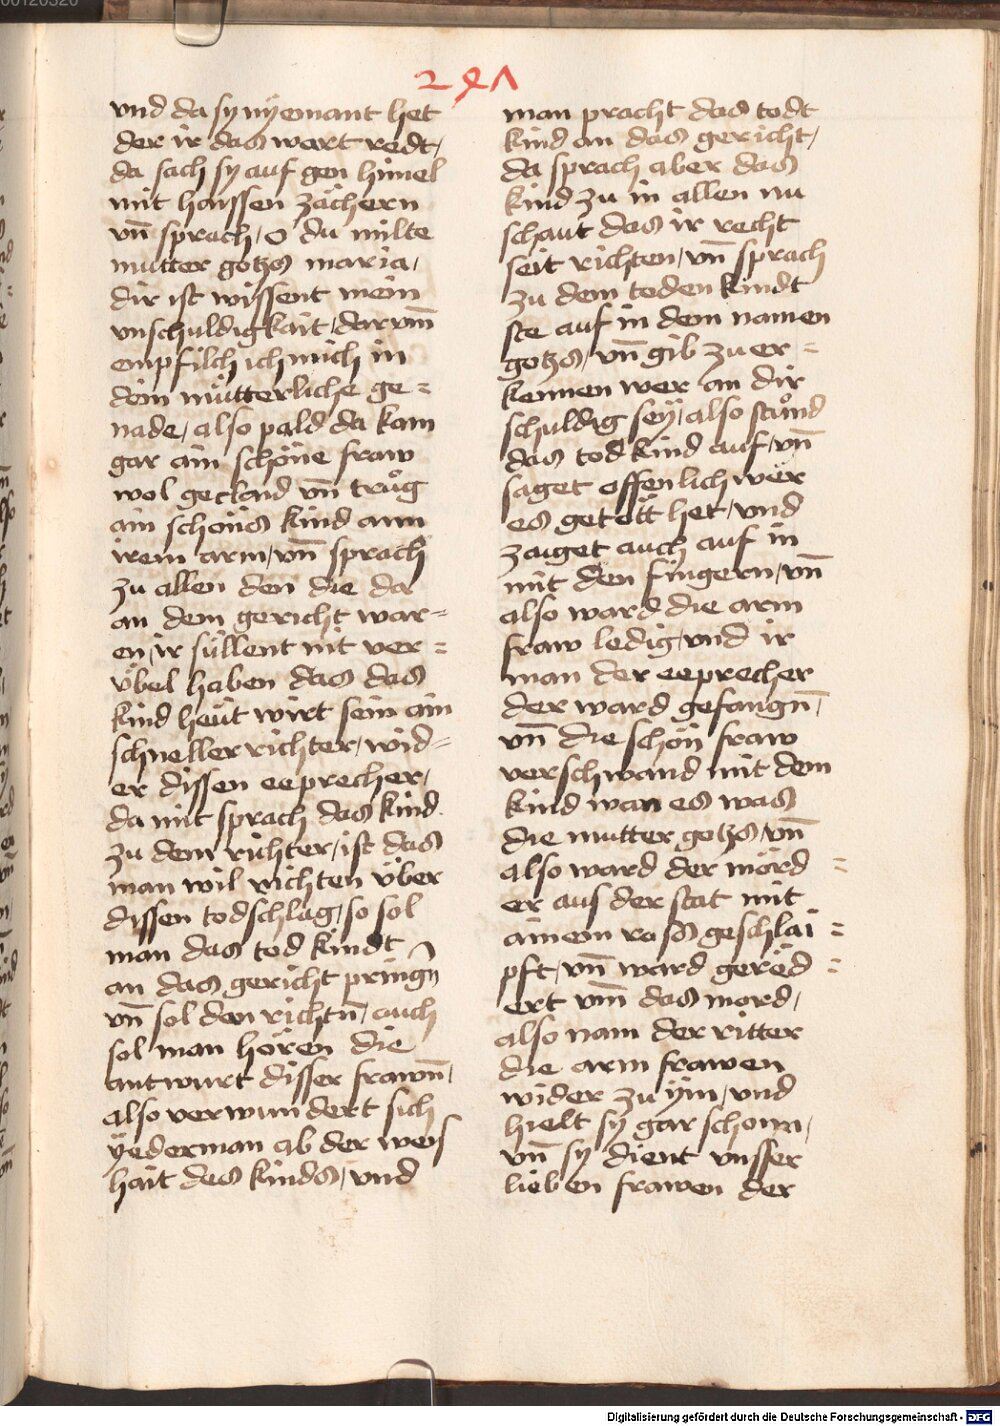 291
vnd da sy nÿemant het
der ir das wort redt,
da sach sy auf gen himel
mit haissen zächern
vn̄ sprach, o du milte
mutter gotzs maria,
dir ist wissent mein
vnschuldigkait, darvm̄
empfilch ich mich in
dein mütterliche ge =
nade, also pald da kam
gar ain schöne fraw
wol geclaid vn̄ trůg
ain schöns kind ann
irem arm, vn̄ sprach
zu allen den die da
an dem gericht war=
en, ir süllent nit ver =
übel haben das das
kind heüt wirt sein ain
schneller richter, wid=
er dissen eeprecher,
da mit sprach das kind
zu dem richter, ist das
man wil richten über
dissen todschlag, so sol
man das tod kindt
an das gericht pringn̄
vn̄ sol den richtn̄, auch
sol man hören die
antwurt disser frawn̄,
also verwundert sich
ÿederman ab der weis
hait des kinds, vnd
man pracht das todt
kind an das gericht,
da sprach aber das
kind zu in allen nu
schaut das ir recht
seit richten, vn̄ sprach
zu dem toden kindt
ste auf in dem namen
gotzs, vn̄ gib zu er =
kennen wer an dir
schuldig seÿ, also stůnd
das tod kind auf, vn̄
saget offenlich wer
es getött het, vnd
zaiget auch auf in
mit den fingern, vn̄
also ward die arm
fraw ledig, vnd ir
man der eeprecher
der ward gefangn̄,
vn̄ die schön fraw
verschwand mit dem
kind wan es was
die mutter gotzs, vn̄
also ward der mörd =
er aus der stat mit
ainem ross geschlai =
pft, vn̄ ward gered =
ert vm̄ das mord,
also nam der ritter
die arm frawen
wider zu ÿm, vnd
hielt sy gar schonn,
vn̄ sy dient vnsser
lieben frawen der
Digitalisierung gefördert durch die Deutsche Forschungsgemeinschaft - DFG